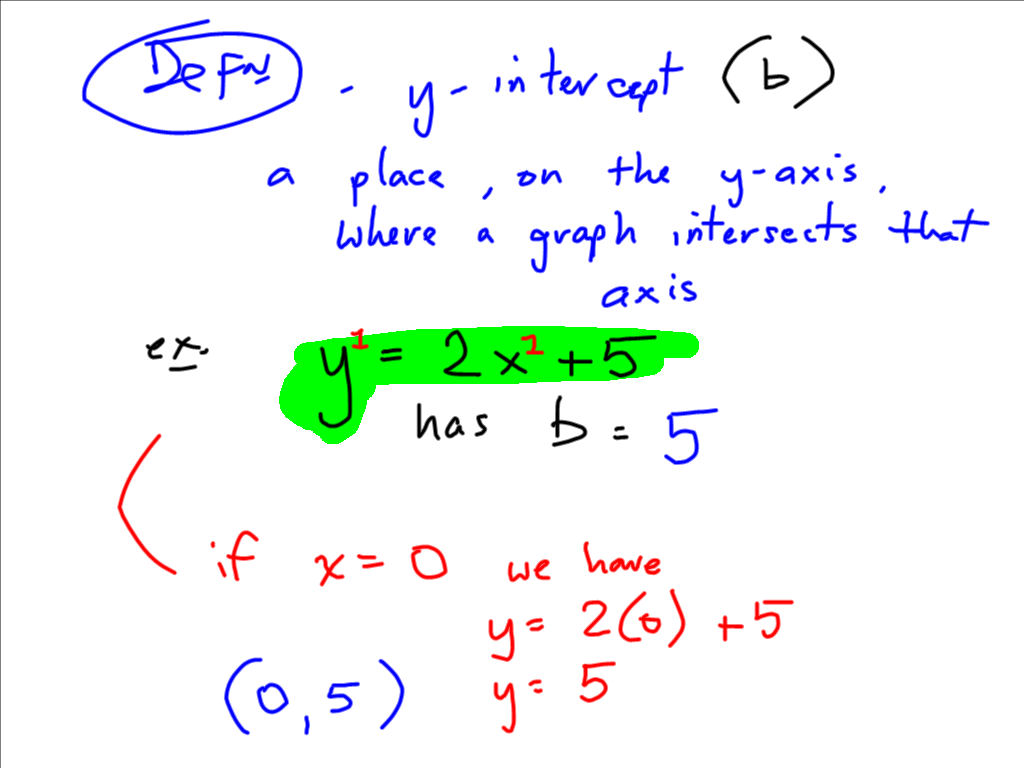 Defn - y-intercept (b)
a place, on the y-axis,
where a graph intersects that
axis
ex. y¹ = 2x¹ + 5
has b = 5
if x = 0 we have
y = 2(0) + 5
y = 5
(0, 5)